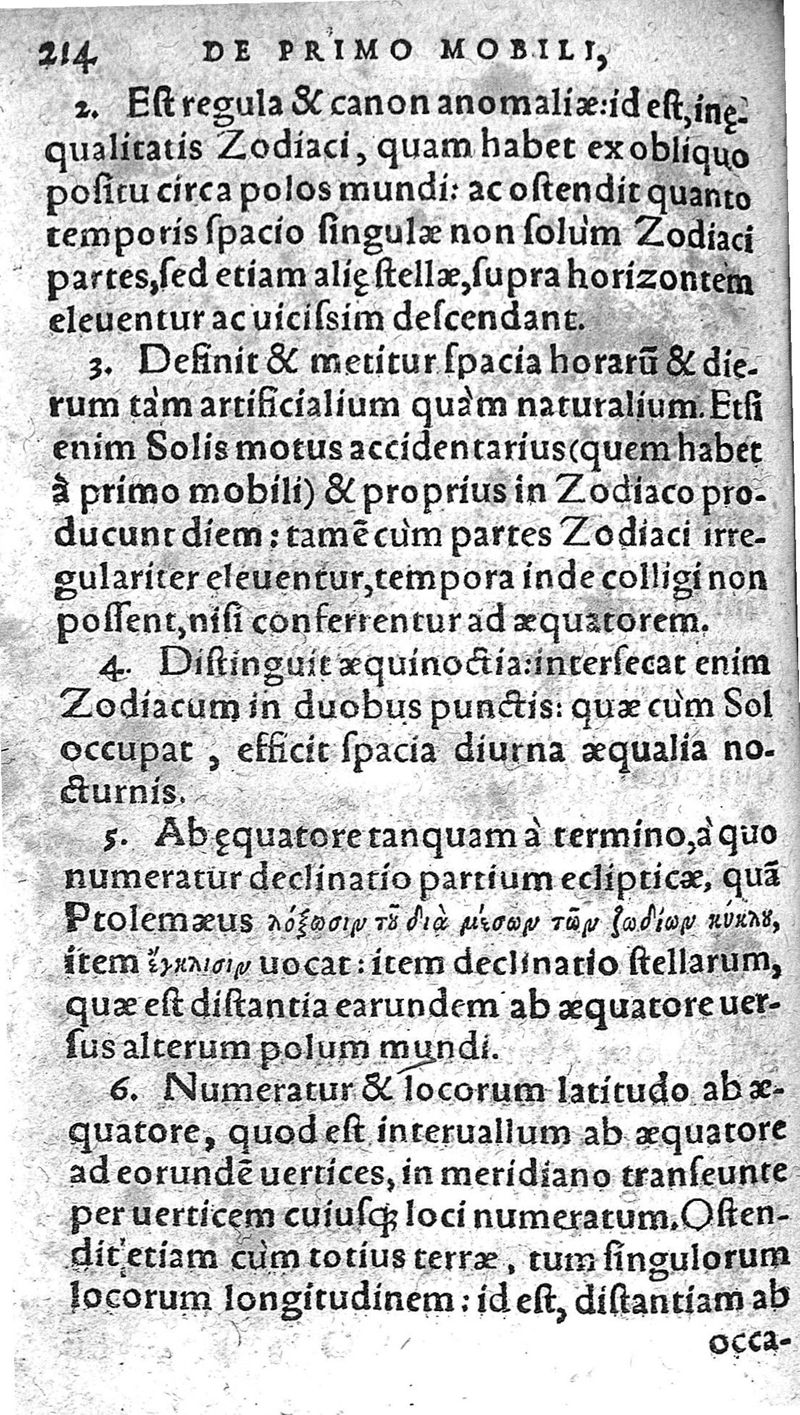 214 DE PRIMO MOBILI,
2. Eſt regula & canon anomaliæ: id eſt, inę-
qualitatis Zodiaci, quam habet ex obliquo
poſitu circa polos mundi: ac oſtendit quanto
temporis ſpacio ſingulæ non ſolùm Zodiaci
partes, ſed etiam alię ſtellæ, ſupra horizontem
eleuentur ac uiciſsim deſcendant.
3. Definit & metitur ſpacia horarū & die-
rum tàm artificialium quàm naturalium. Etſi
enim Solis motus accidentarius (quem habet
à primo mobili) & proprius in Zodiaco pro-
ducunt diem: tamē cùm partes Zodiaci irre-
gulariter eleuentur, tempora inde colligi non
poſſent, niſi conferrentur ad æquatorem.
4. Diſtinguit æquinoctia: interſecat enim
Zodiacum in duobus punctis: quæ cùm Sol
occupat, efficit ſpacia diurna æqualia no-
cturnis.
5. Ab ęquatore tanquam à termino, à quo
numeratur declinatio partium eclipticæ, quā
Ptolemæus λόξωσιν τȣ͂ διὰ μέσων τῶν ζωδίων κύκλȣ,
item ἔγκλισιν uocat: item declinatio ſtellarum,
quæ eſt diſtantia earundem ab æquatore uer-
ſus alterum polum mundi.
6. Numeratur & locorum latitudo ab æ-
quatore, quod eſt interuallum ab æquatore
ad eorundē uertices, in meridiano tranſeunte
per uerticem cuiuſq; loci numeratum. Oſten-
dit etiam cùm totius terræ, tum ſingulorum
locorum longitudinem: id eſt, diſtantiam ab
occa-